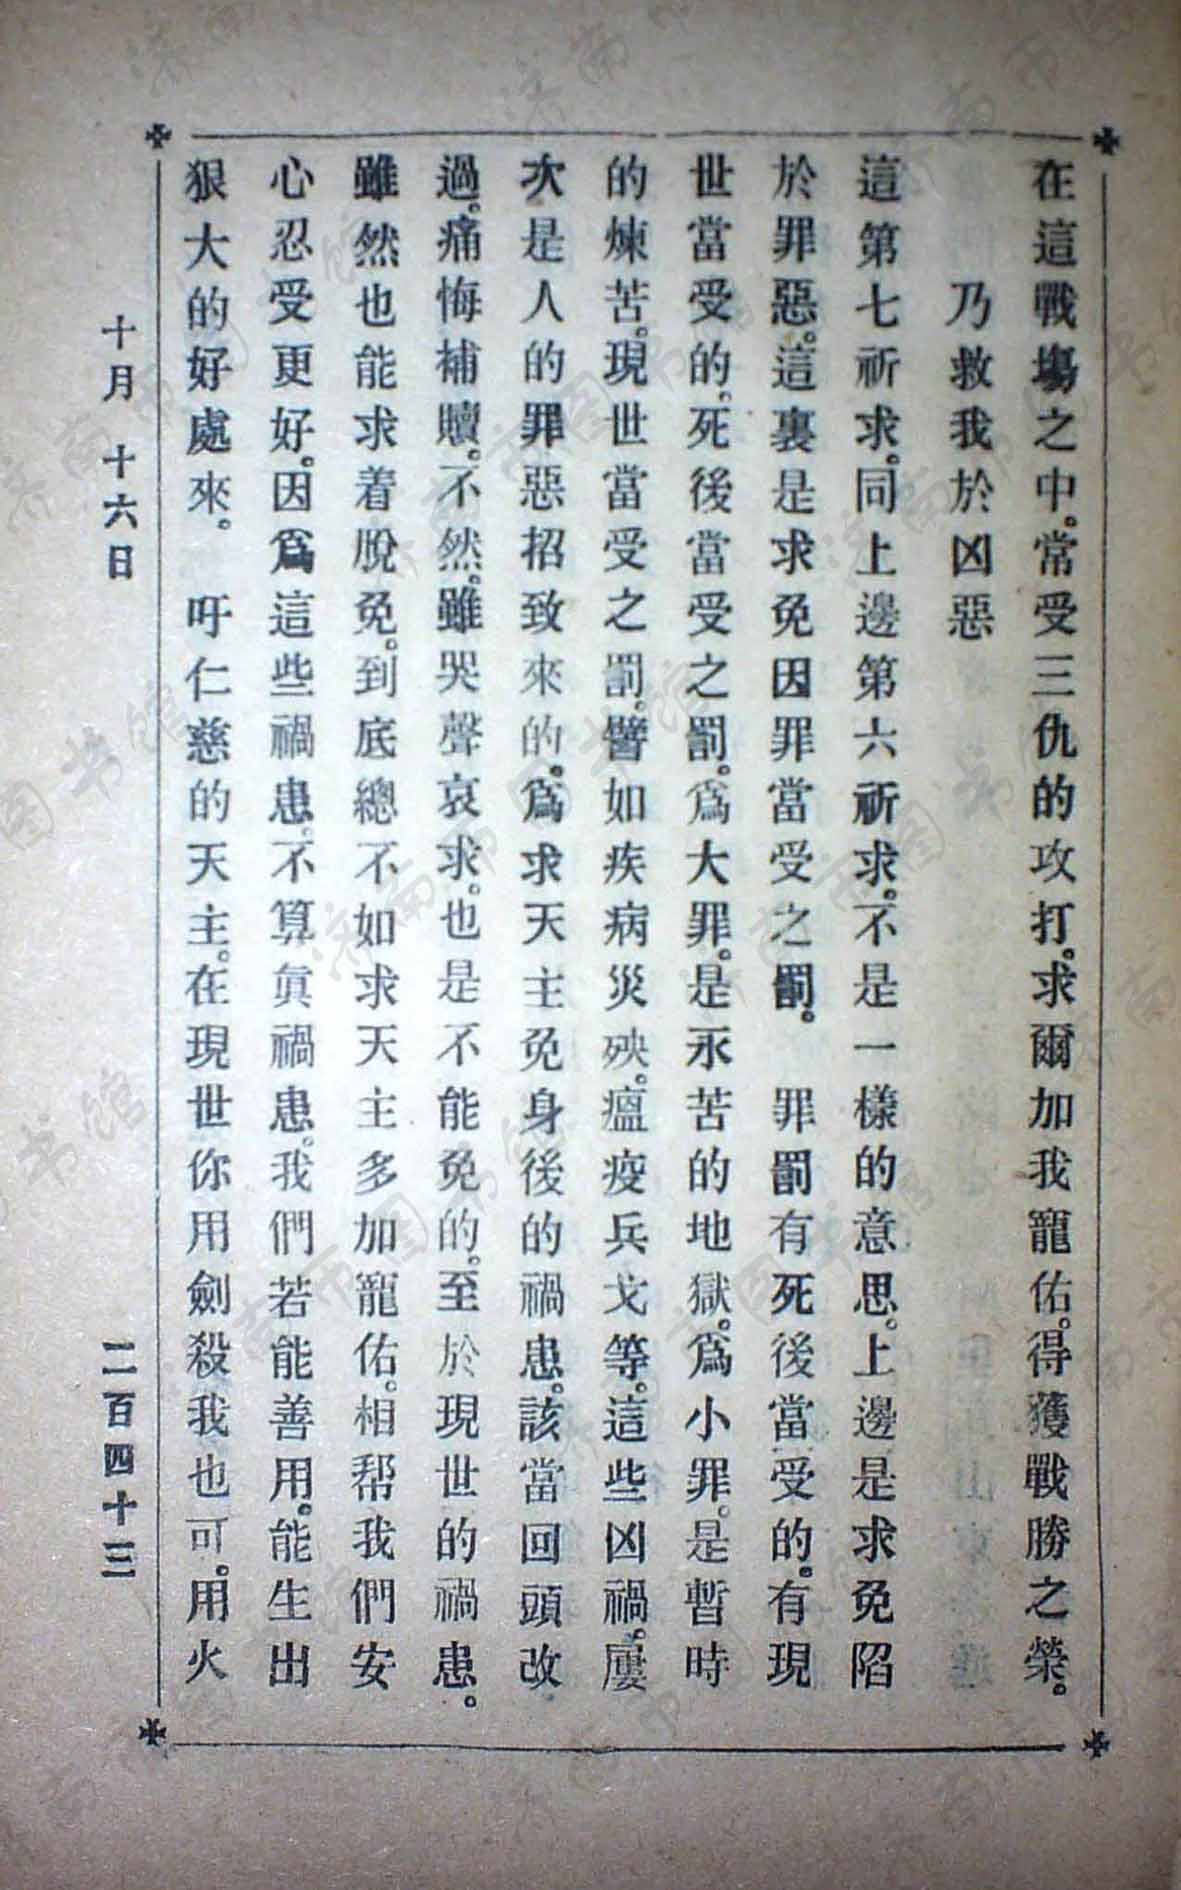 在這戰場之中。常受三仇的攻打。求爾加我寵佑。得獲戰勝之榮。
乃救我於凶惡
這第七祈求。同上邊第六祈求。不是一樣的意思。上邊是求免陷
於罪惡。這裏是求免因罪當受之罰。　罪罰有死後當受的。有現
世當受的。死後當受之罰。爲大罪。是永苦的地獄。爲小罪。是暫時
的煉苦。現世當受之罰。譬如疾病災殃。瘟疫兵戈等。這些凶禍。屢
次是人的罪惡招致來的。爲求天主免身後的禍患。該當回頭改
過。痛悔補贖。不然。雖哭聲哀求。也是不能免的。至於現世的禍患。
雖然也能求着脫免。到底總不如求天主多加寵佑。相帮我們安
心忍受更好。因爲這些禍患。不算眞禍患。我們若能善用。能生出
狠大的好處來。　吁仁慈的天主。在現世你用劍殺我也可。用火
十月十六日　二百四十三
济南市图书馆